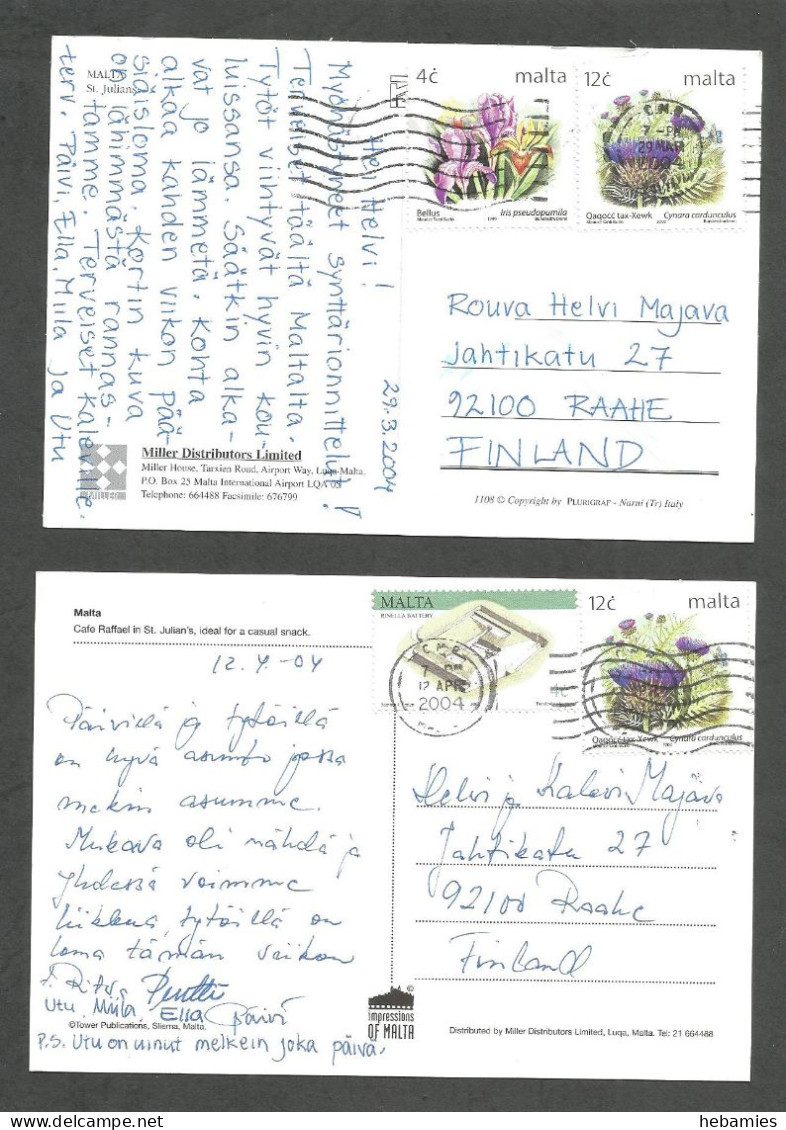 MALTA
St. Julians
Hei Helvi!
Myöhästyneet synttärionnittelut!
Terveiset täältä Maltalta.
Tytöt viihtyvät hyvin kou-
luissansa. Säätkin alka-
vat jo lämmetä. Kohta
alkaa kahden viikon pää-
siäisloma. Kortin kuva
on lähimmästä rannas-
tamme. Terveiset Kaleville.
terv. Päivi, Ella, Miila ja Utu
29.3.2004
4c malta
Bellus Iris pseudopumila
12c malta
Qaqoċċ tax-Xewk Cynara cardunculus
7-PM
29 MAR
2004
Rouva Helvi Majava
Jahtikatu 27
92100 RAAHE
FINLAND
MILLER
Miller Distributors Limited
Miller House, Tarxien Road, Airport Way, Luqa-Malta.
P.O. Box 25 Malta International Airport LQA 05
Telephone: 664488 Facsimile: 676799
1108 © Copyright by PLURIGRAF - Narni (Tr) Italy
Malta
Cafe Raffael in St. Julian's, ideal for a casual snack.
12.4.-04
MALTA
RINELLA BATTERY
12 APR
2004
12c malta
Qaqoċċ tax-Xewk Cynara cardunculus
Päivillä ja tytöillä
on hyvä asunto jossa
mekin asumme.
Mukava oli nähdä ja
yhdessä voimme
liikkua, tytöillä on
loma tämän viikon
t. Ritva Pentti
Utu, Miila, Ella Päivi
©Tower Publications, Sliema, Malta.
P.S. Utu on uinut melkein joka päivä.
Helvi ja Kalevi Majava
Jahtikatu 27
92100 Raahe
Finland
©
impressions
OF MALTA
Distributed by Miller Distributors Limited, Luqa, Malta. Tel: 21 664488
hebamies